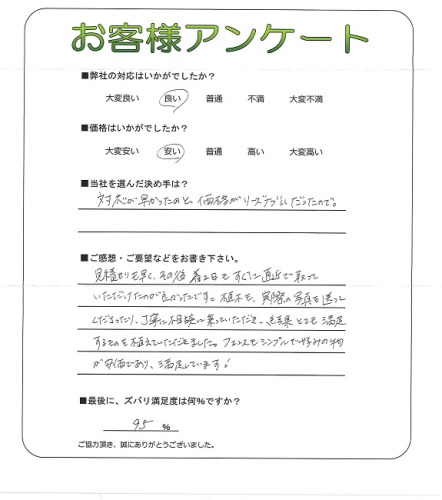 お客様アンケート
■弊社の対応はいかがでしたか?
大変良い 良い 普通 不満 大変不満
■価格はいかがでしたか?
大変安い 安い 普通 高い 大変高い
■当社を選んだ決め手は?
対応が早かったのと、価格がリーズナブルだったので。
■ご感想・ご要望などをお書き下さい。
見積もりも早く、その後着工日もすぐに直近で取って
いただけたのが良かったです。植木も、実際の写真を送って
くださったり、丁寧に相談に乗っていただき、結果とても満足
するものを植えていただきました。フェンスもシンプルで好みの物
が安価であり、満足しています!
■最後に、ズバリ満足度は何%ですか?
95 %
ご協力頂き、誠にありがとうございました。